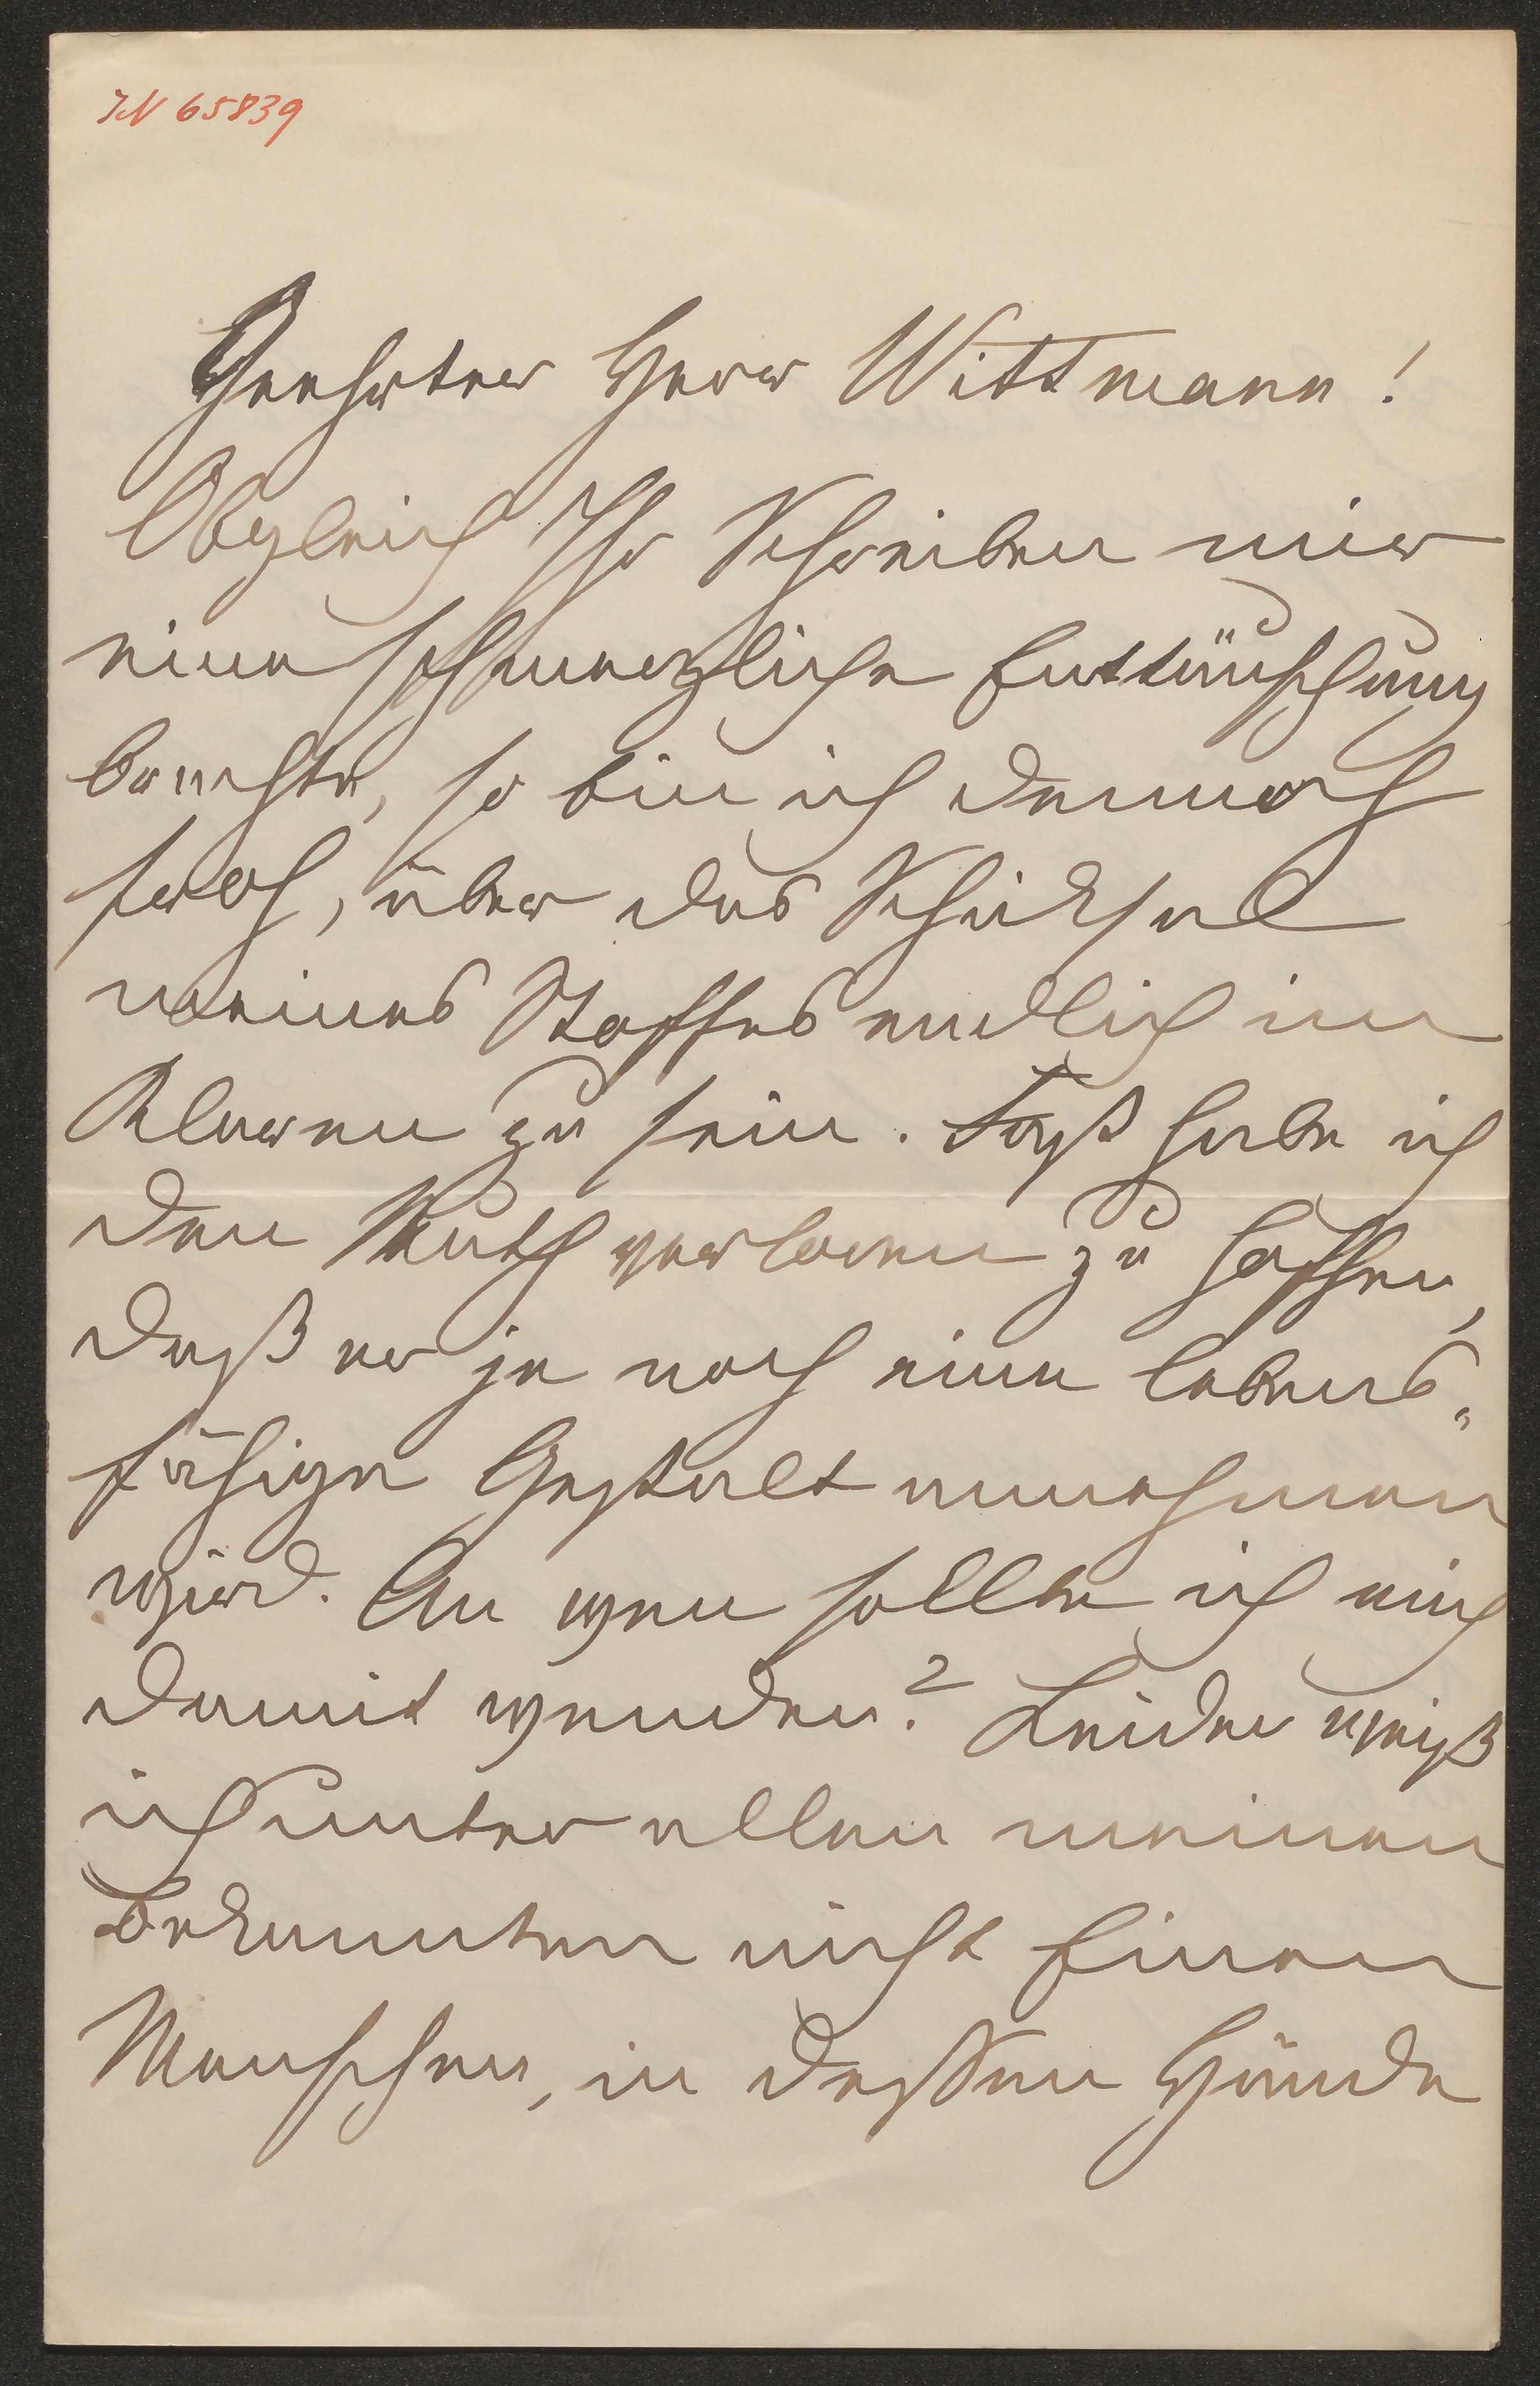 IN 65839
Geehrter Herr Wittmann!
Obgleich Ihr Schreiben mir
eine schmerzliche Enttäuschung
brachte, so bin ich dennoch
froh, über das Schicksal
meines Stoffes endlich im
Klaren zu sein. Fast habe ich
den Muth verloren zu hoffen,
daß er je noch eine lebens„
fähige Gestalt annehmen
wird. An wen sollte ich mich
damit wenden? Leider weiß
ich unter allen meinen
Bekannten nicht Einen
Menschen, in dessen Hände